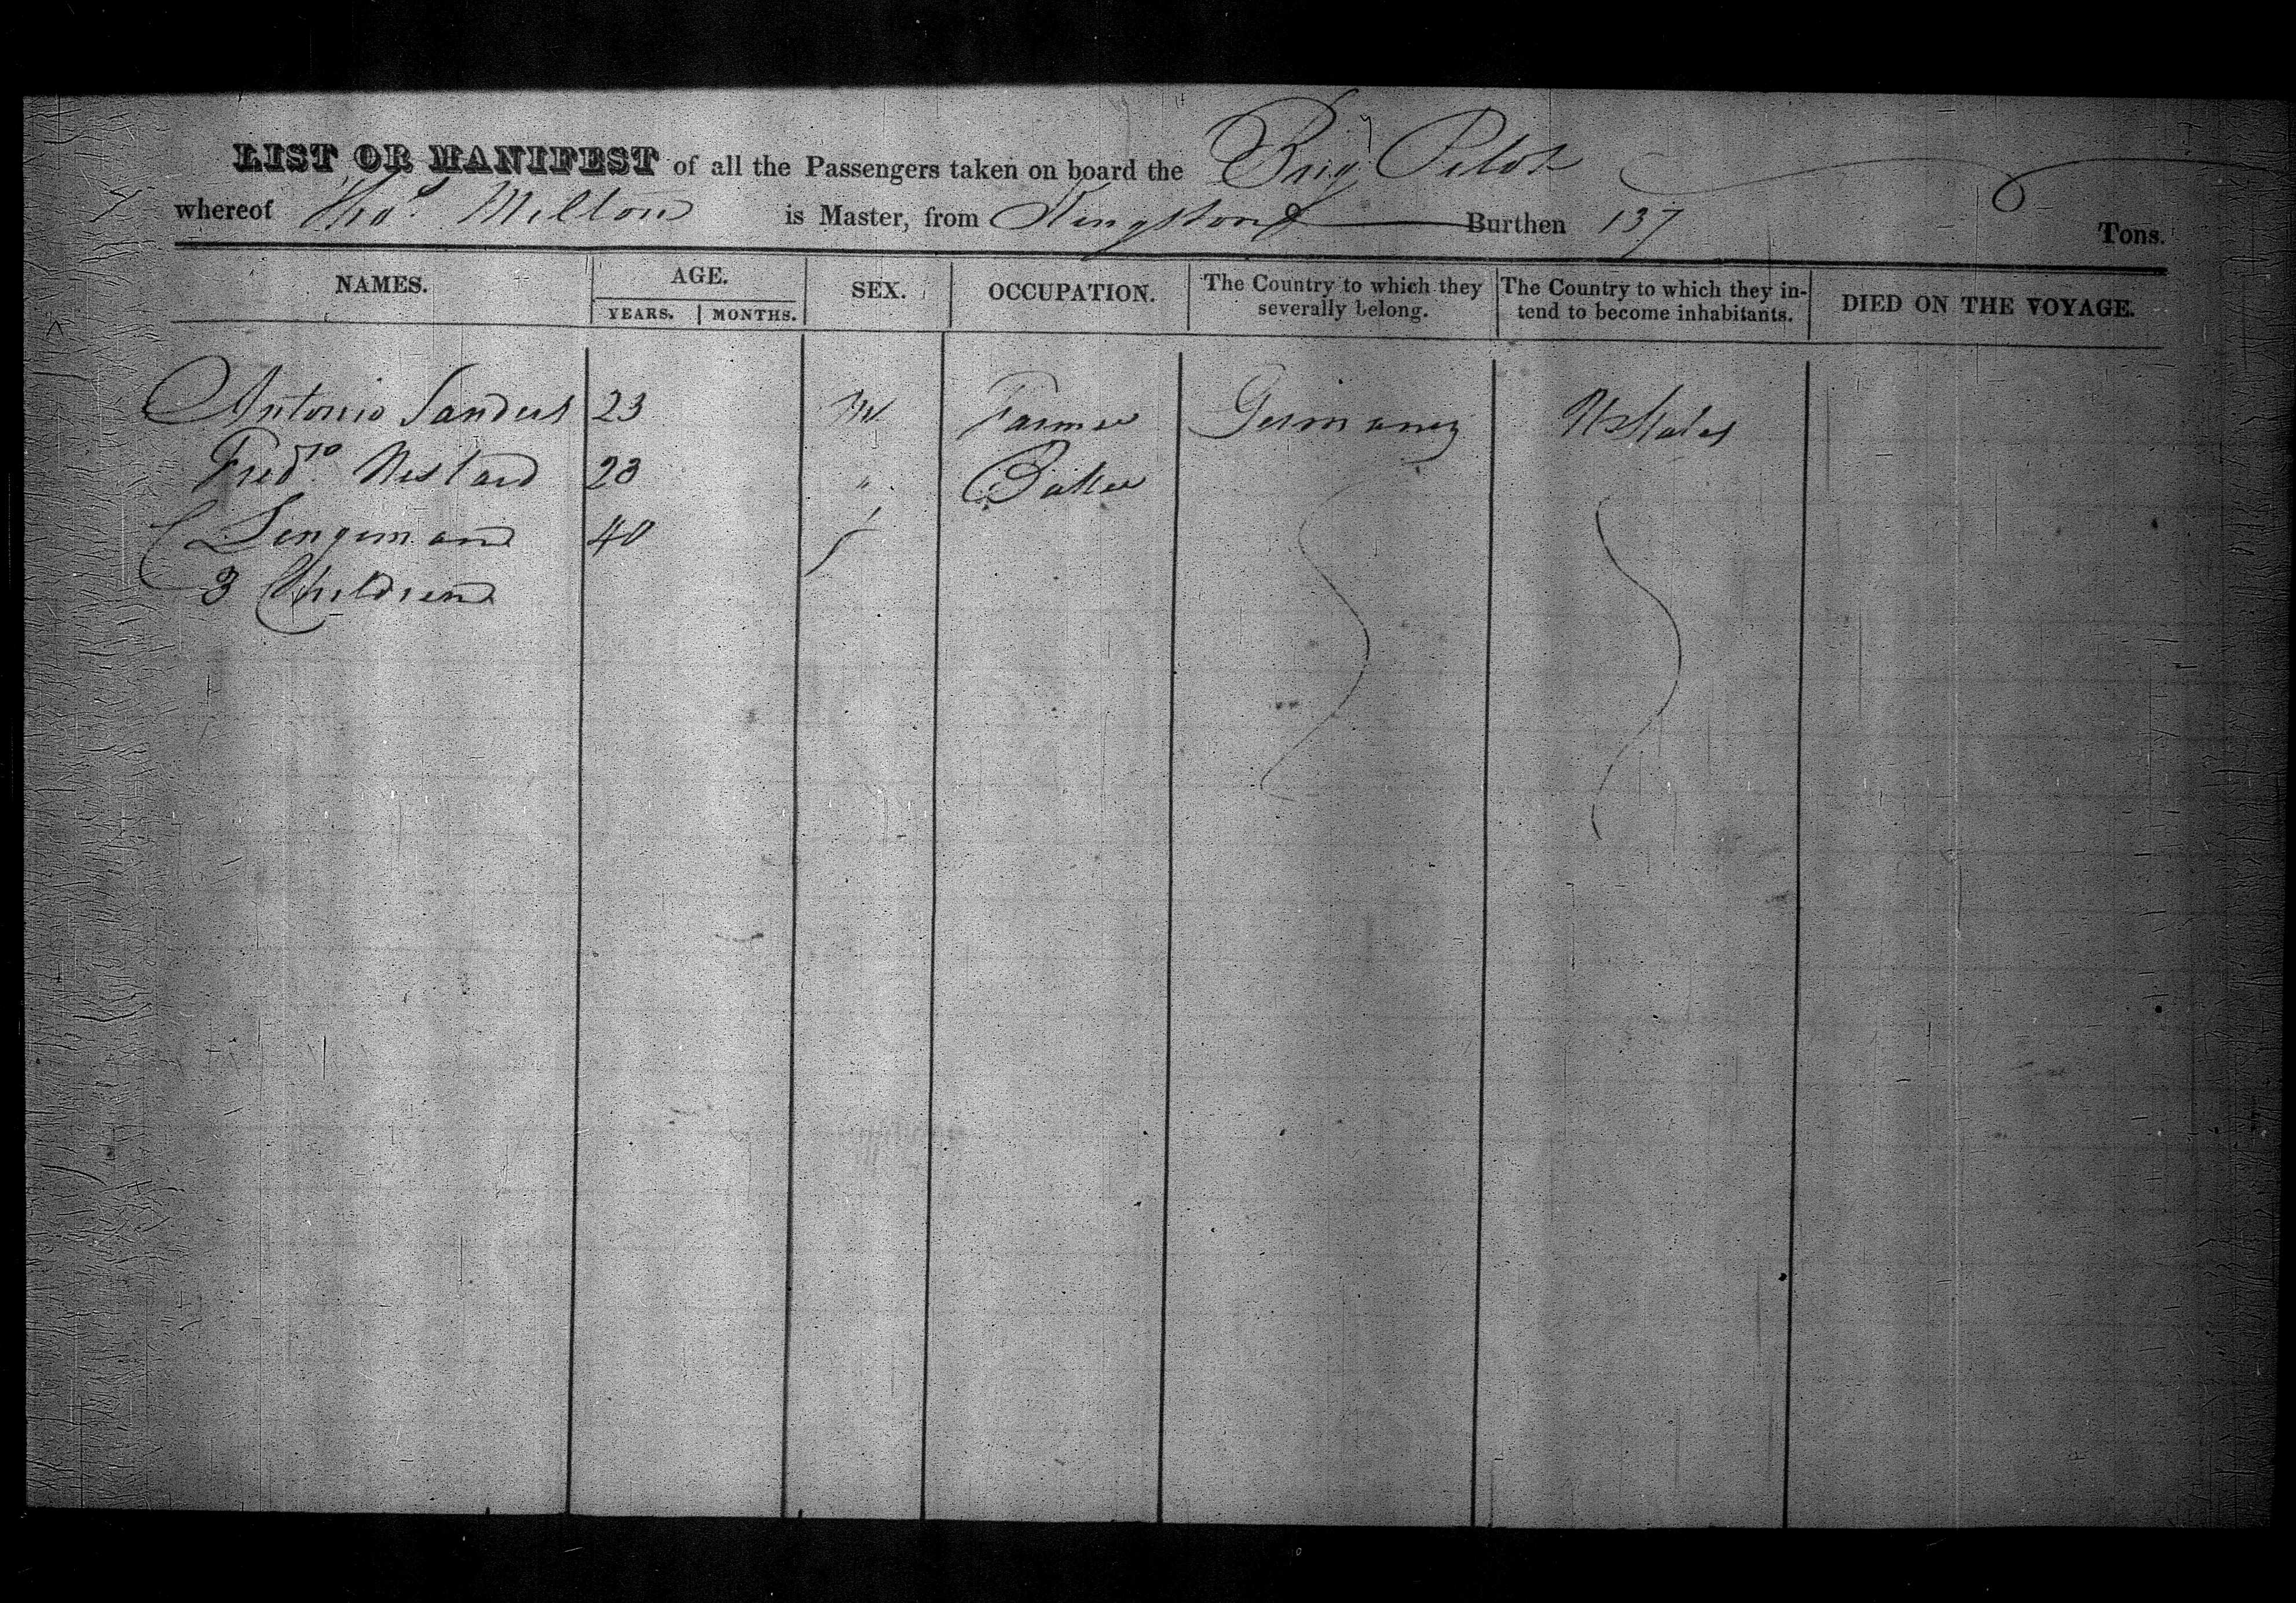 LIST OR MANIFEST of all the Passengers taken on board the Brig Pilot
whereof Thos. Milton is Master, from Kingston Burthen 137 Tons.
NAMES. AGE. SEX. OCCUPATION. The Country to which they severally belong. The Country to which they intend to become inhabitants. DIED ON THE VOYAGE.
YEARS. MONTHS.
Antonio Sanders 23 M Farmer Germany U States
Fredro. 23 " Baker
Lengeman 40
3 Children